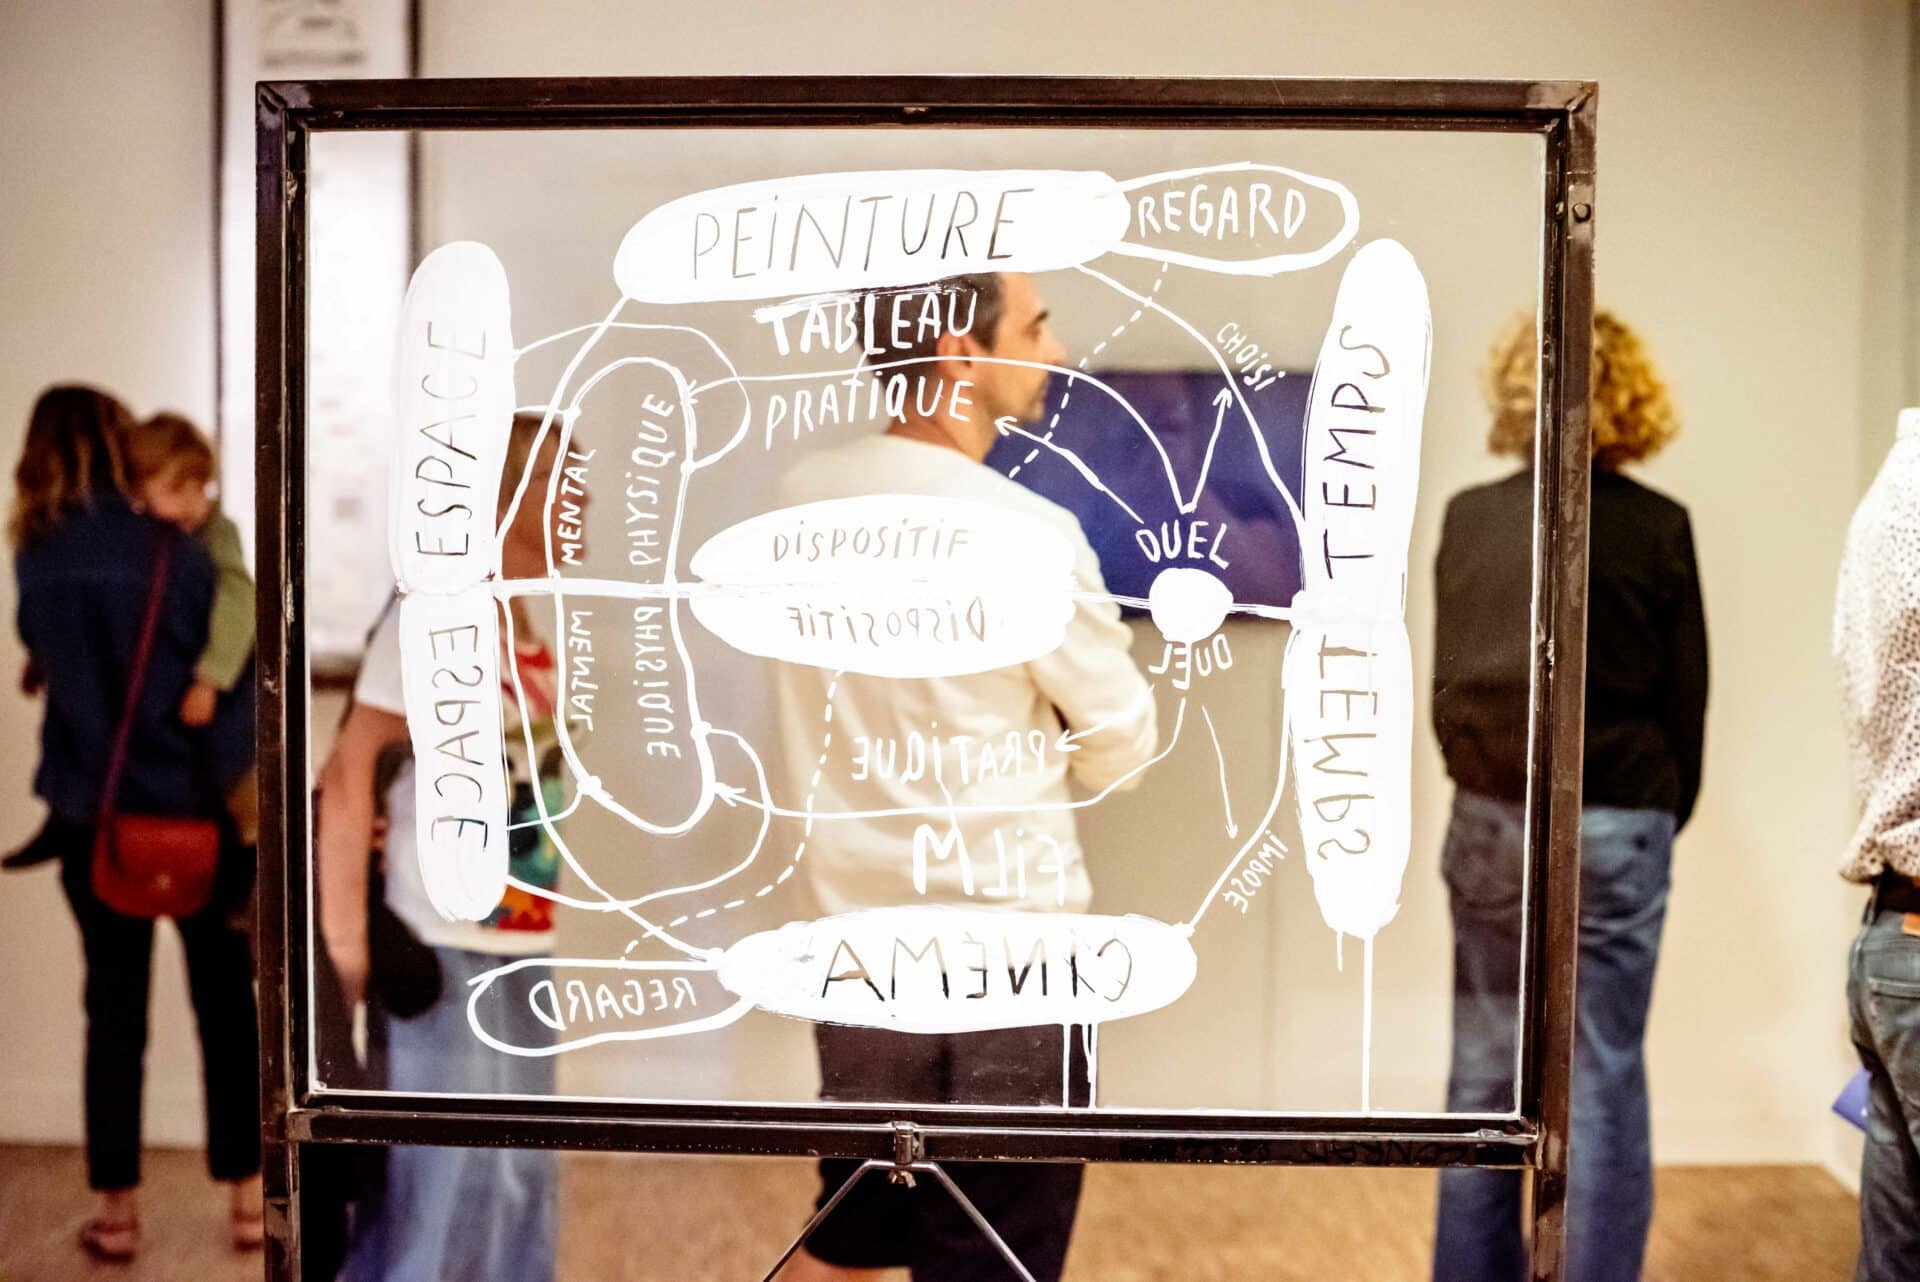 PEINTURE
REGARD
TABLEAU
PRATIQUE
CHOISI
ESPACE
MENTAL
PHYSIQUE
TEMPS
DISPOSITIF
DUEL
DISPOSITIF
DUEL
ESPACE
MENTAL
PHYSIQUE
TEMPS
PRATIQUE
FILM
IMPOSÉ
CINÉMA
REGARD